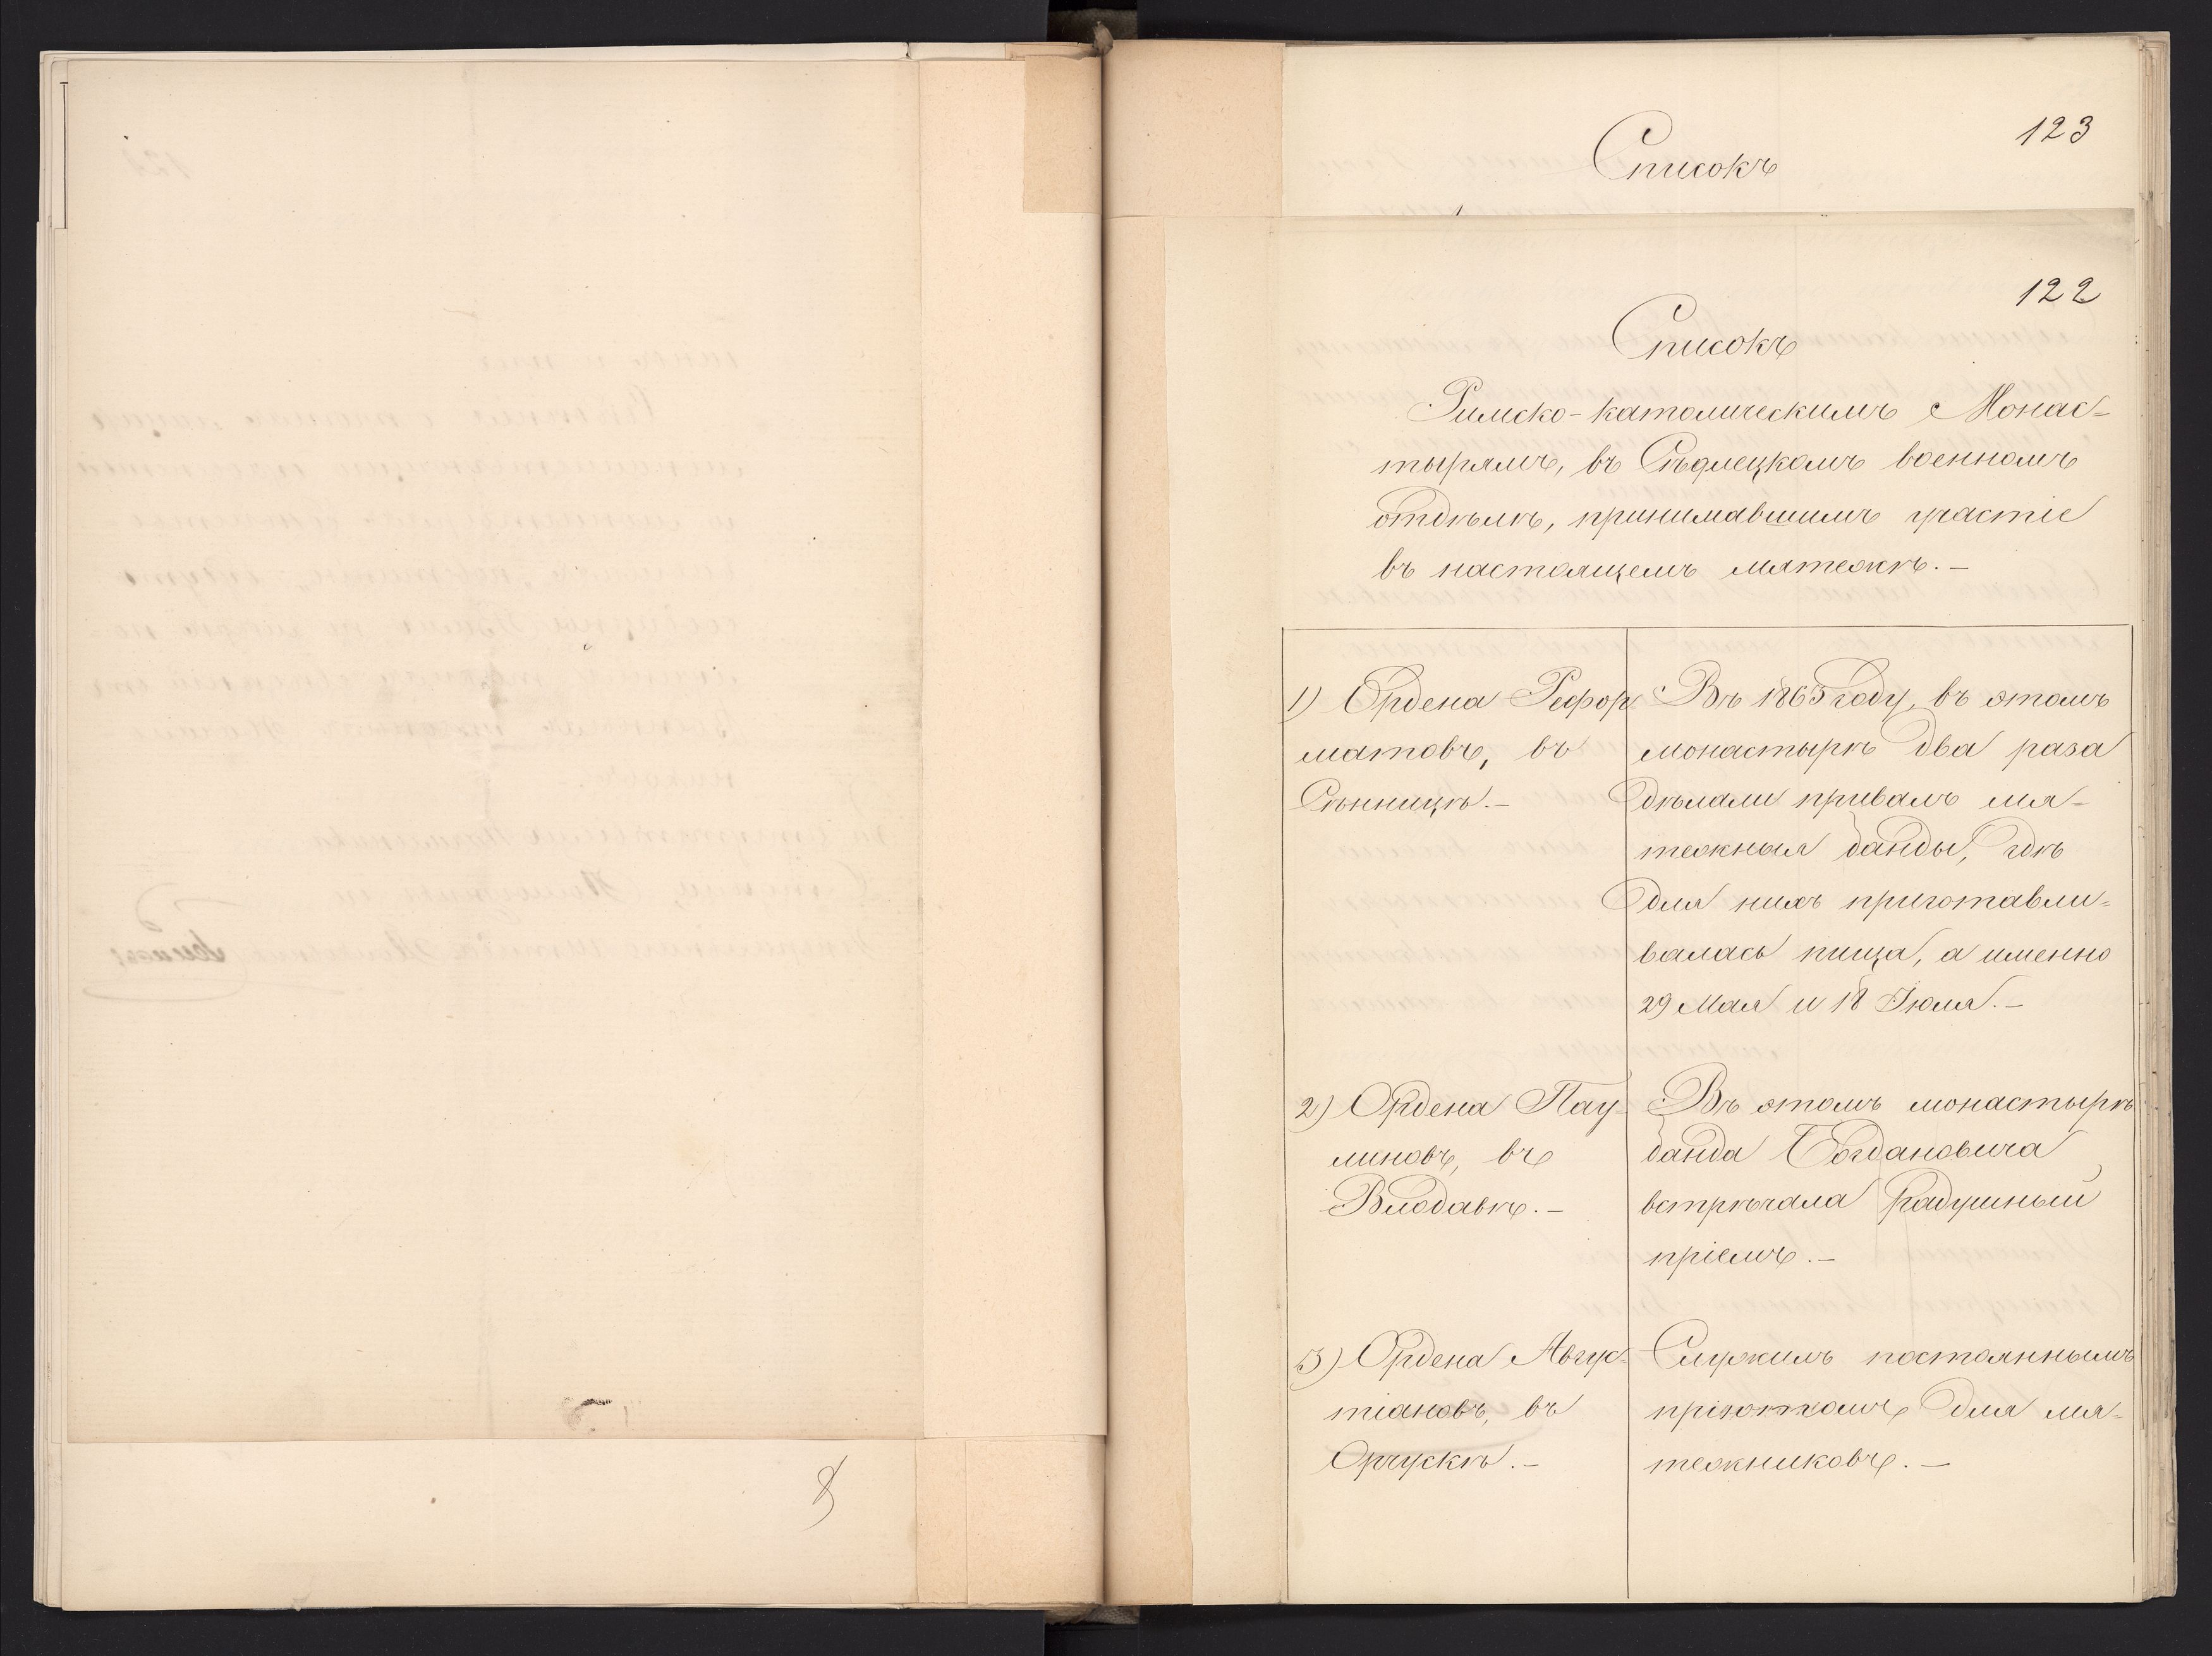 123
Списокъ
122
Списокъ
Римско-католическимъ Монас-
тырямъ, въ Сѣдлецкомъ военномъ
отдѣлѣ, принимавшимъ участіе
въ настоящемъ мятежѣ.—
1) Ордена Рефор
матовъ, въ
Сѣнницѣ.—
Въ 1863 году, въ этомъ
монастырѣ два раза
дѣлали привалъ мя-
тежныя банды, гдѣ
для нихъ приготавли-
валась пища, а именно
29 Мая и 18 Іюля.—
2) Ордена Пау-
линовъ, въ
Влодавѣ.—
Въ этомъ монастырѣ
банда Богдановича
встрѣчала радушный
пріемъ.—
3) Ордена Авгус-
тіановъ, въ
Орчускѣ.—
Служилъ постояннымъ
пріютомъ для мя-
тежниковъ.—